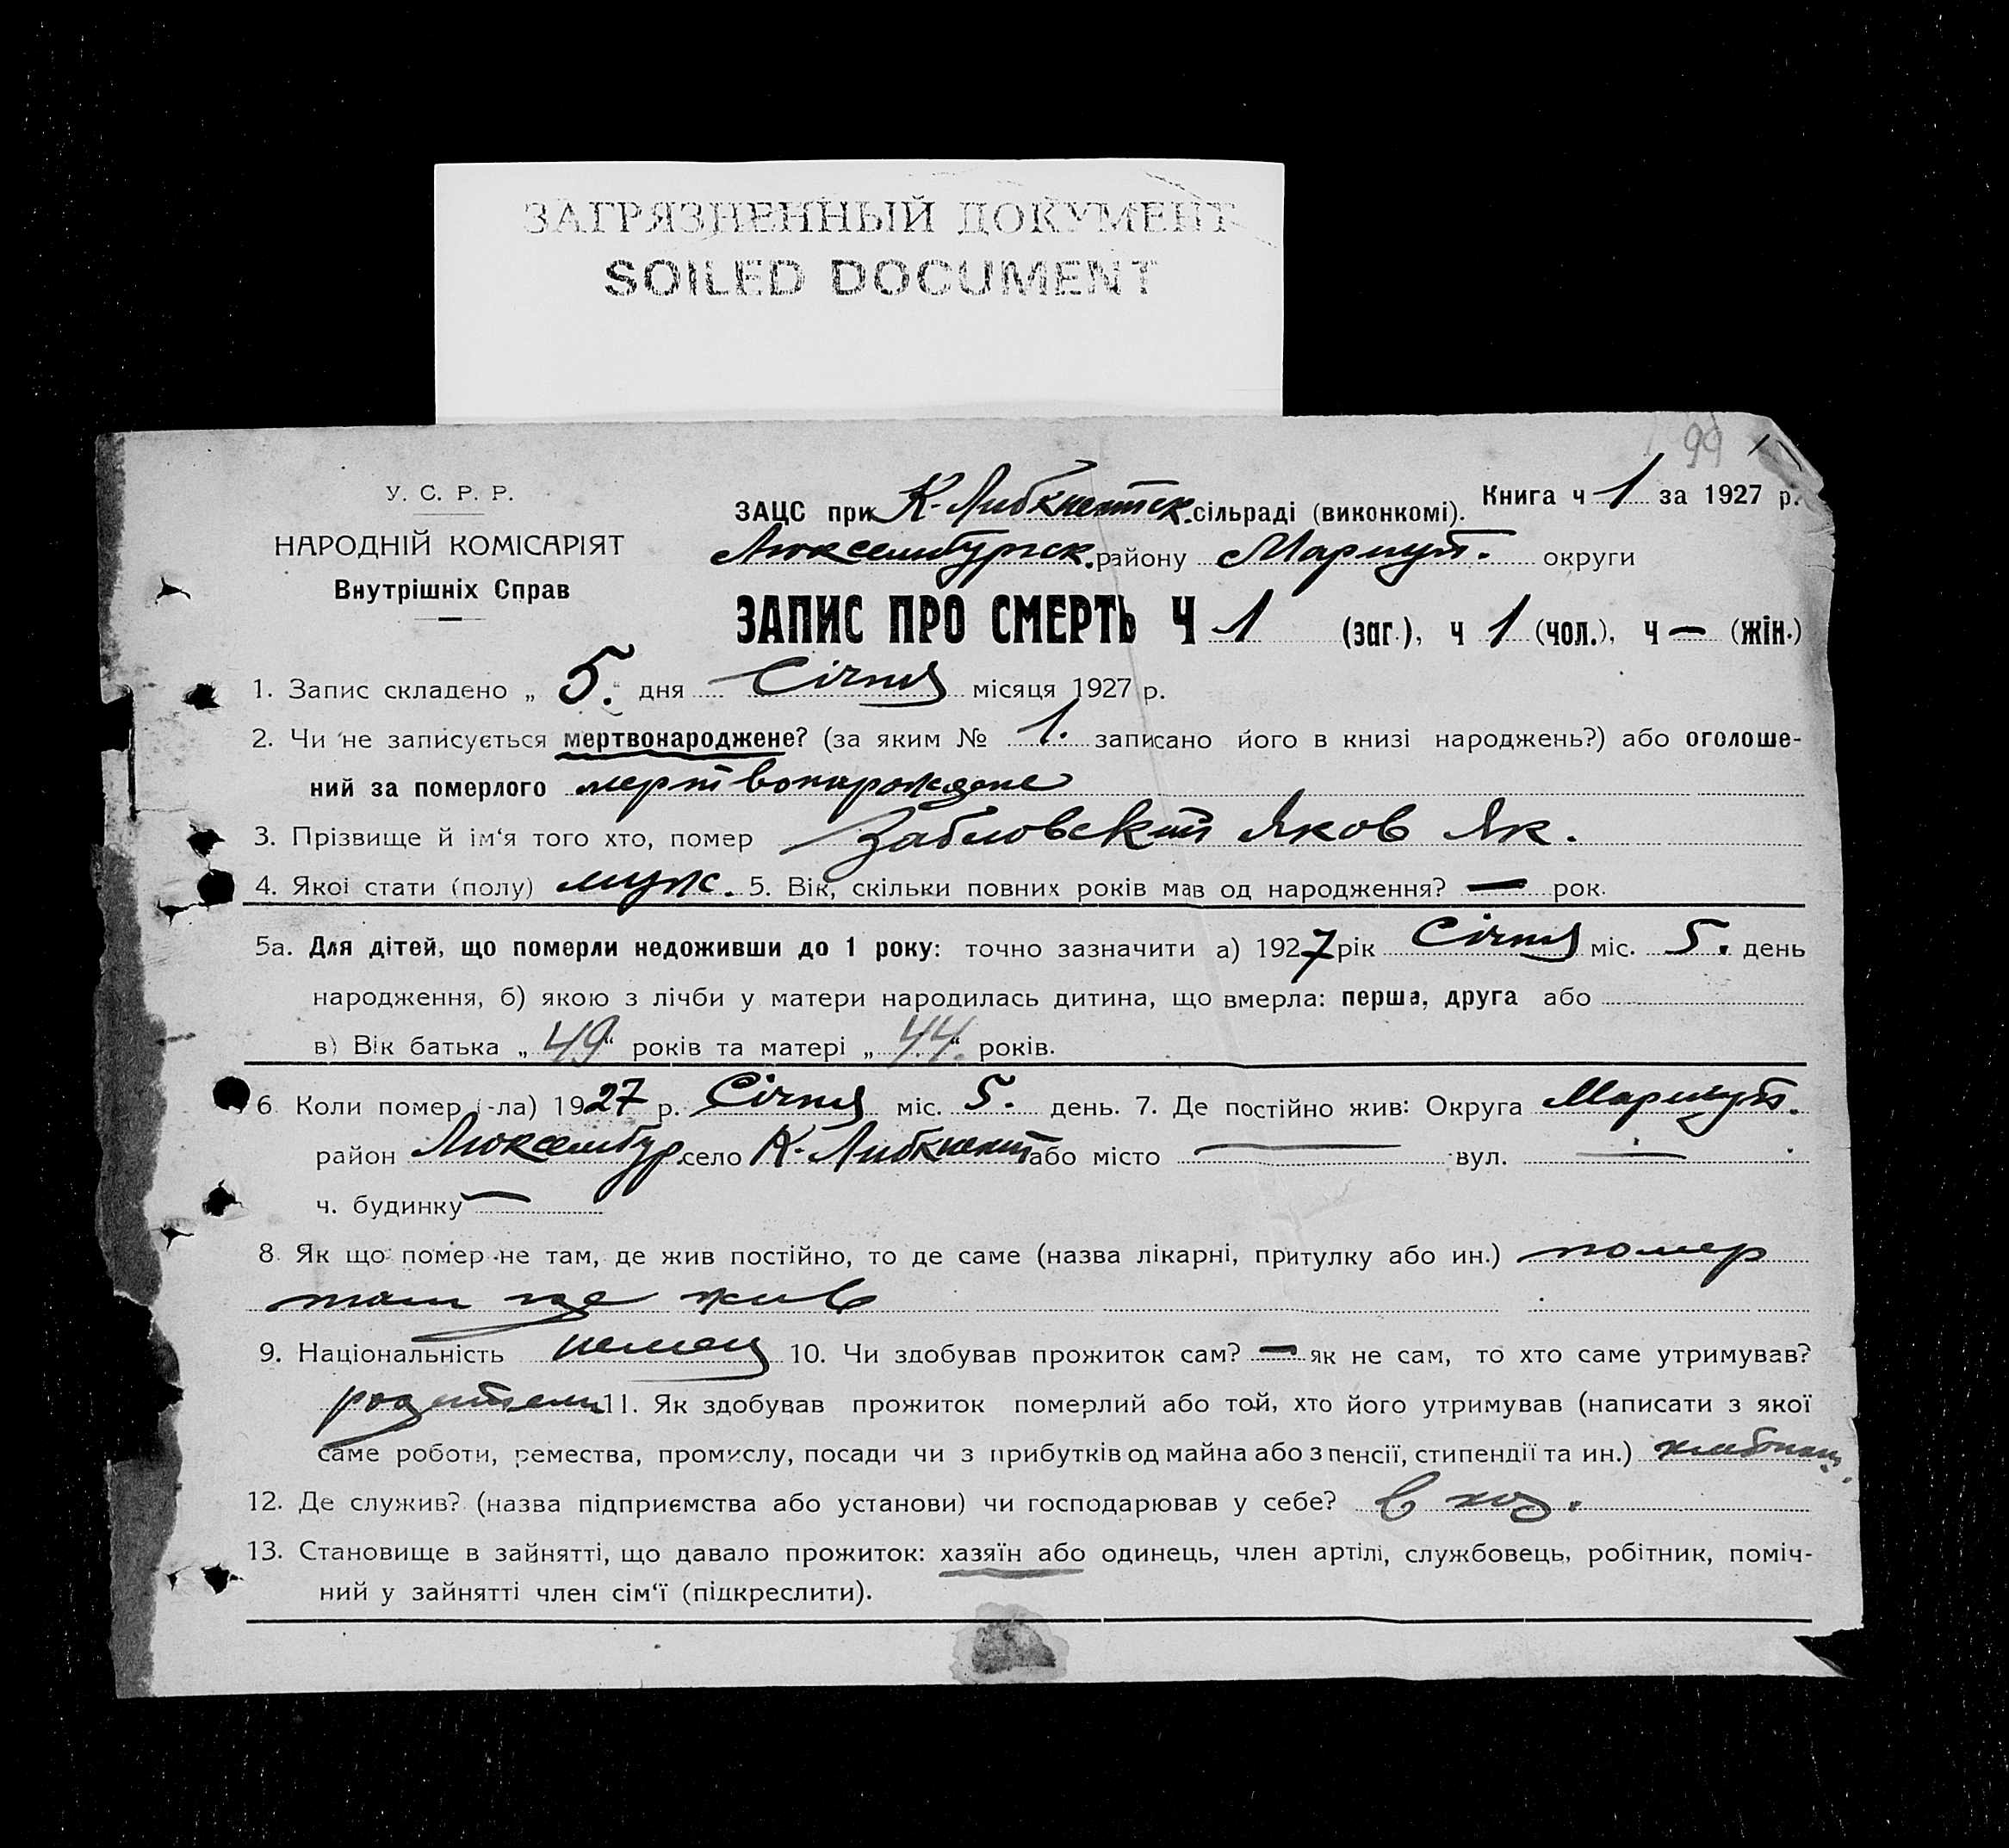 ЗАГРЯЗНЕННЫЙ ДОКУМЕНТ
SOILED DOCUMENT
99
У. С. Р. Р.
НАРОДНІЙ КОМІСАРІЯТ
Внутрішніх Справ
ЗАЦС при К-Либкнехтск. сільраді (виконкомі). Книга ч 1 за 1927 р.
Люксембургск. району Мариуп. округи
ЗАПИС ПРО СМЕРТЬ Ч 1 (заг.), ч 1 (чол.), ч — (жін.)
1. Запис складено „ 5. " дня Січня місяця 1927 р.
2. Чи не записується мертвонароджене? (за яким № 1. записано його в книзі народжень?) або оголоше-
ний за померлого мертвонарождене
3. Прізвище й ім'я того хто, помер Забловский Яков Як.
4. Якої стати (полу) муж. 5. Вік, скільки повних років мав од народження? — рок.
5а. Для дітей, що померли недоживши до 1 року: точно зазначити а) 1927 рік Січня міс. 5. день
народження, б) якою з лічби у матери народилась дитина, що вмерла: перша, друга або
в) Вік батька „ 49 " років та матері „ 44. " років.
6 Коли помер (-ла) 1927 р. Січня міс. 5. день. 7. Де постійно жив: Округа Мариуп.
район Люксембур. село К-Либкнехт або місто — вул. —
ч. будинку —
8. Як що помер не там, де жив постійно, то де саме (назва лікарні, притулку або ин.) помер
там где жив
9. Національність немец 10. Чи здобував прожиток сам? — як не сам, то хто саме утримував?
родители 11. Як здобував прожиток померлий або той, хто його утримував (написати з якої
саме роботи, ремества, промислу, посади чи з прибутків од майна або з пенсії, стипендії та ин.)
12. Де служив? (назва підприємства або установи) чи господарював у себе? в
13. Становище в зайнятті, що давало прожиток: хазяїн або одинець, член артілі, службовець, робітник, поміч-
ний у зайнятті член сім'ї (підкреслити).